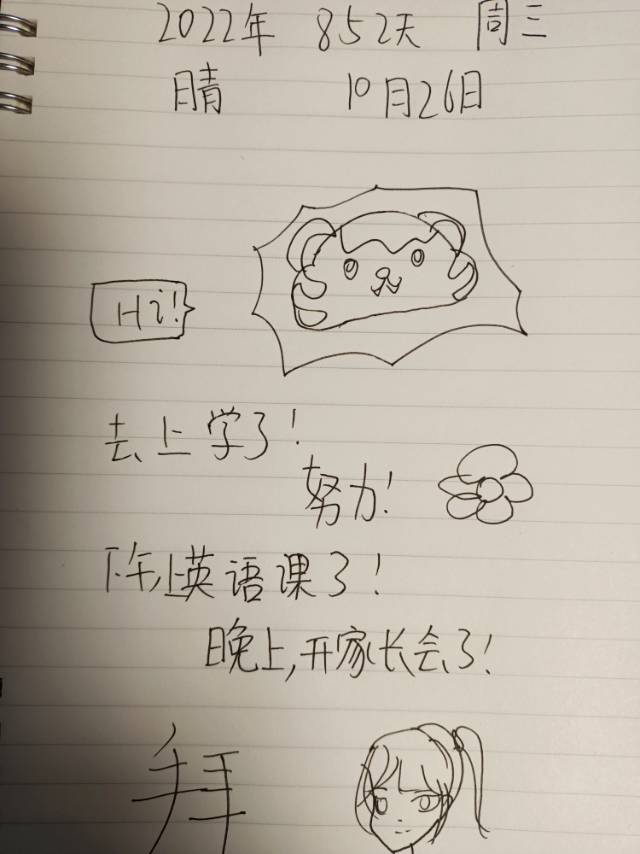 2022年 852天 周三
晴 10月26日
Hi!
去上学了!
努力!
下午,上英语课了!
晚上,开家长会了!
拜